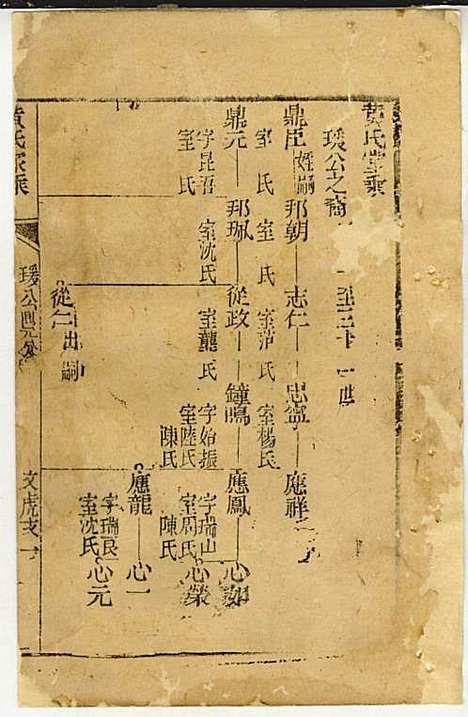 黄氏家乘
瑗公之裔 至三十一世
鼎臣 姪嗣 邦朝 志仁 忠寧 應祥
室 氏 室 氏 室范氏 室楊氏
鼎元 邦珮 從政 鐘鳴 應鳳 心如
字昆吾 室沈氏 室龍氏 字始振 字瑞山 心榮
室 氏 室陸氏 室周氏
陳氏 陳氏
應龍 心一
字瑞良 心元
室沈氏
從仁出嗣
黄氏家乘 瑗公 文虎支 一